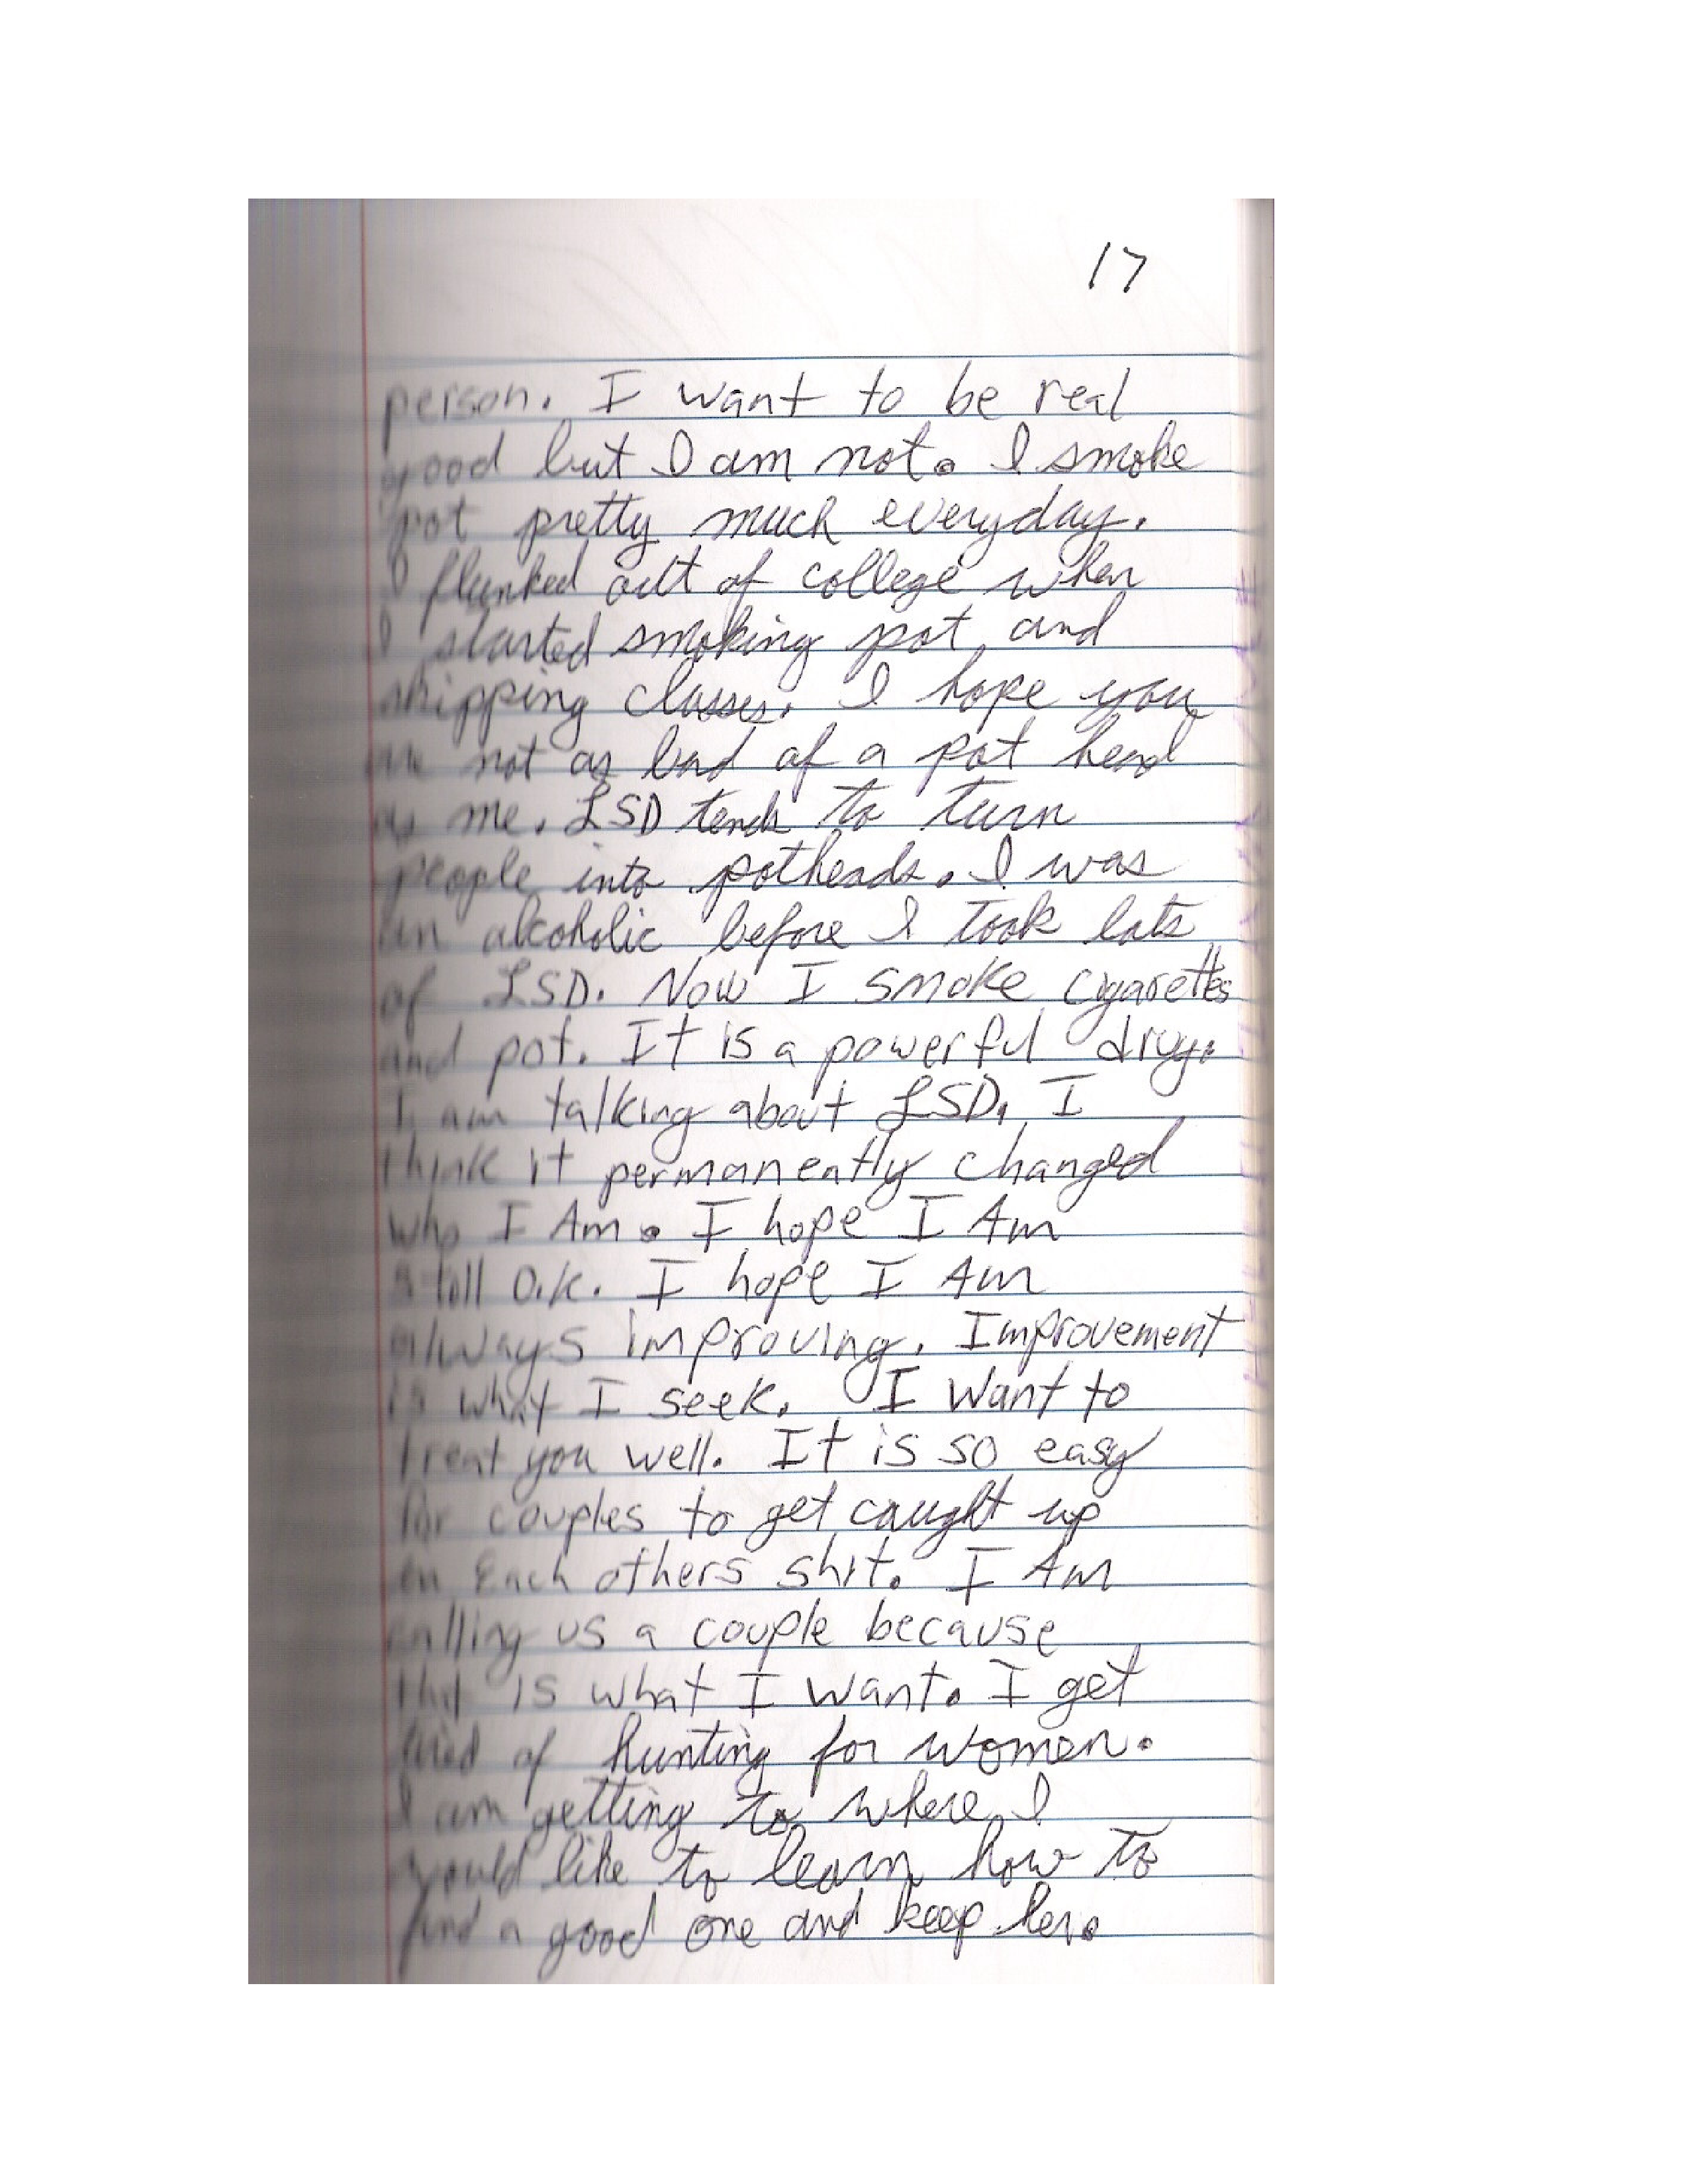 17
person. I want to be real
good but I am not. I smoke
pot pretty much everyday.
I flunked out of college when
I started smoking pot and
skipping classes. I hope you
are not as bad of a pot head
as me. LSD tends to turn
people into potheads. I was
an alcoholic before I took lots
of LSD. Now I smoke cigarettes
and pot. It is a powerful drug.
I am talking about LSD. I
think it permanently changed
who I Am. I hope I Am
still O.K. I hope I Am
always improving. Improvement
is what I seek. I want to
treat you well. It is so easy
for couples to get caught up
in Each others shit. I Am
calling us a couple because
that is what I want. I get
tired of hunting for women.
I am getting to where I
would like to learn how to
find a good one and keep her.